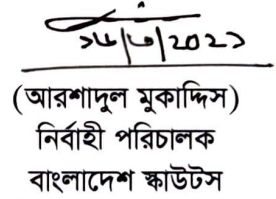 ১৮/৩/২০২১
(আরশাদুল মুকাদ্দিস)
নির্বাহী পরিচালক
বাংলাদেশ স্কাউটস